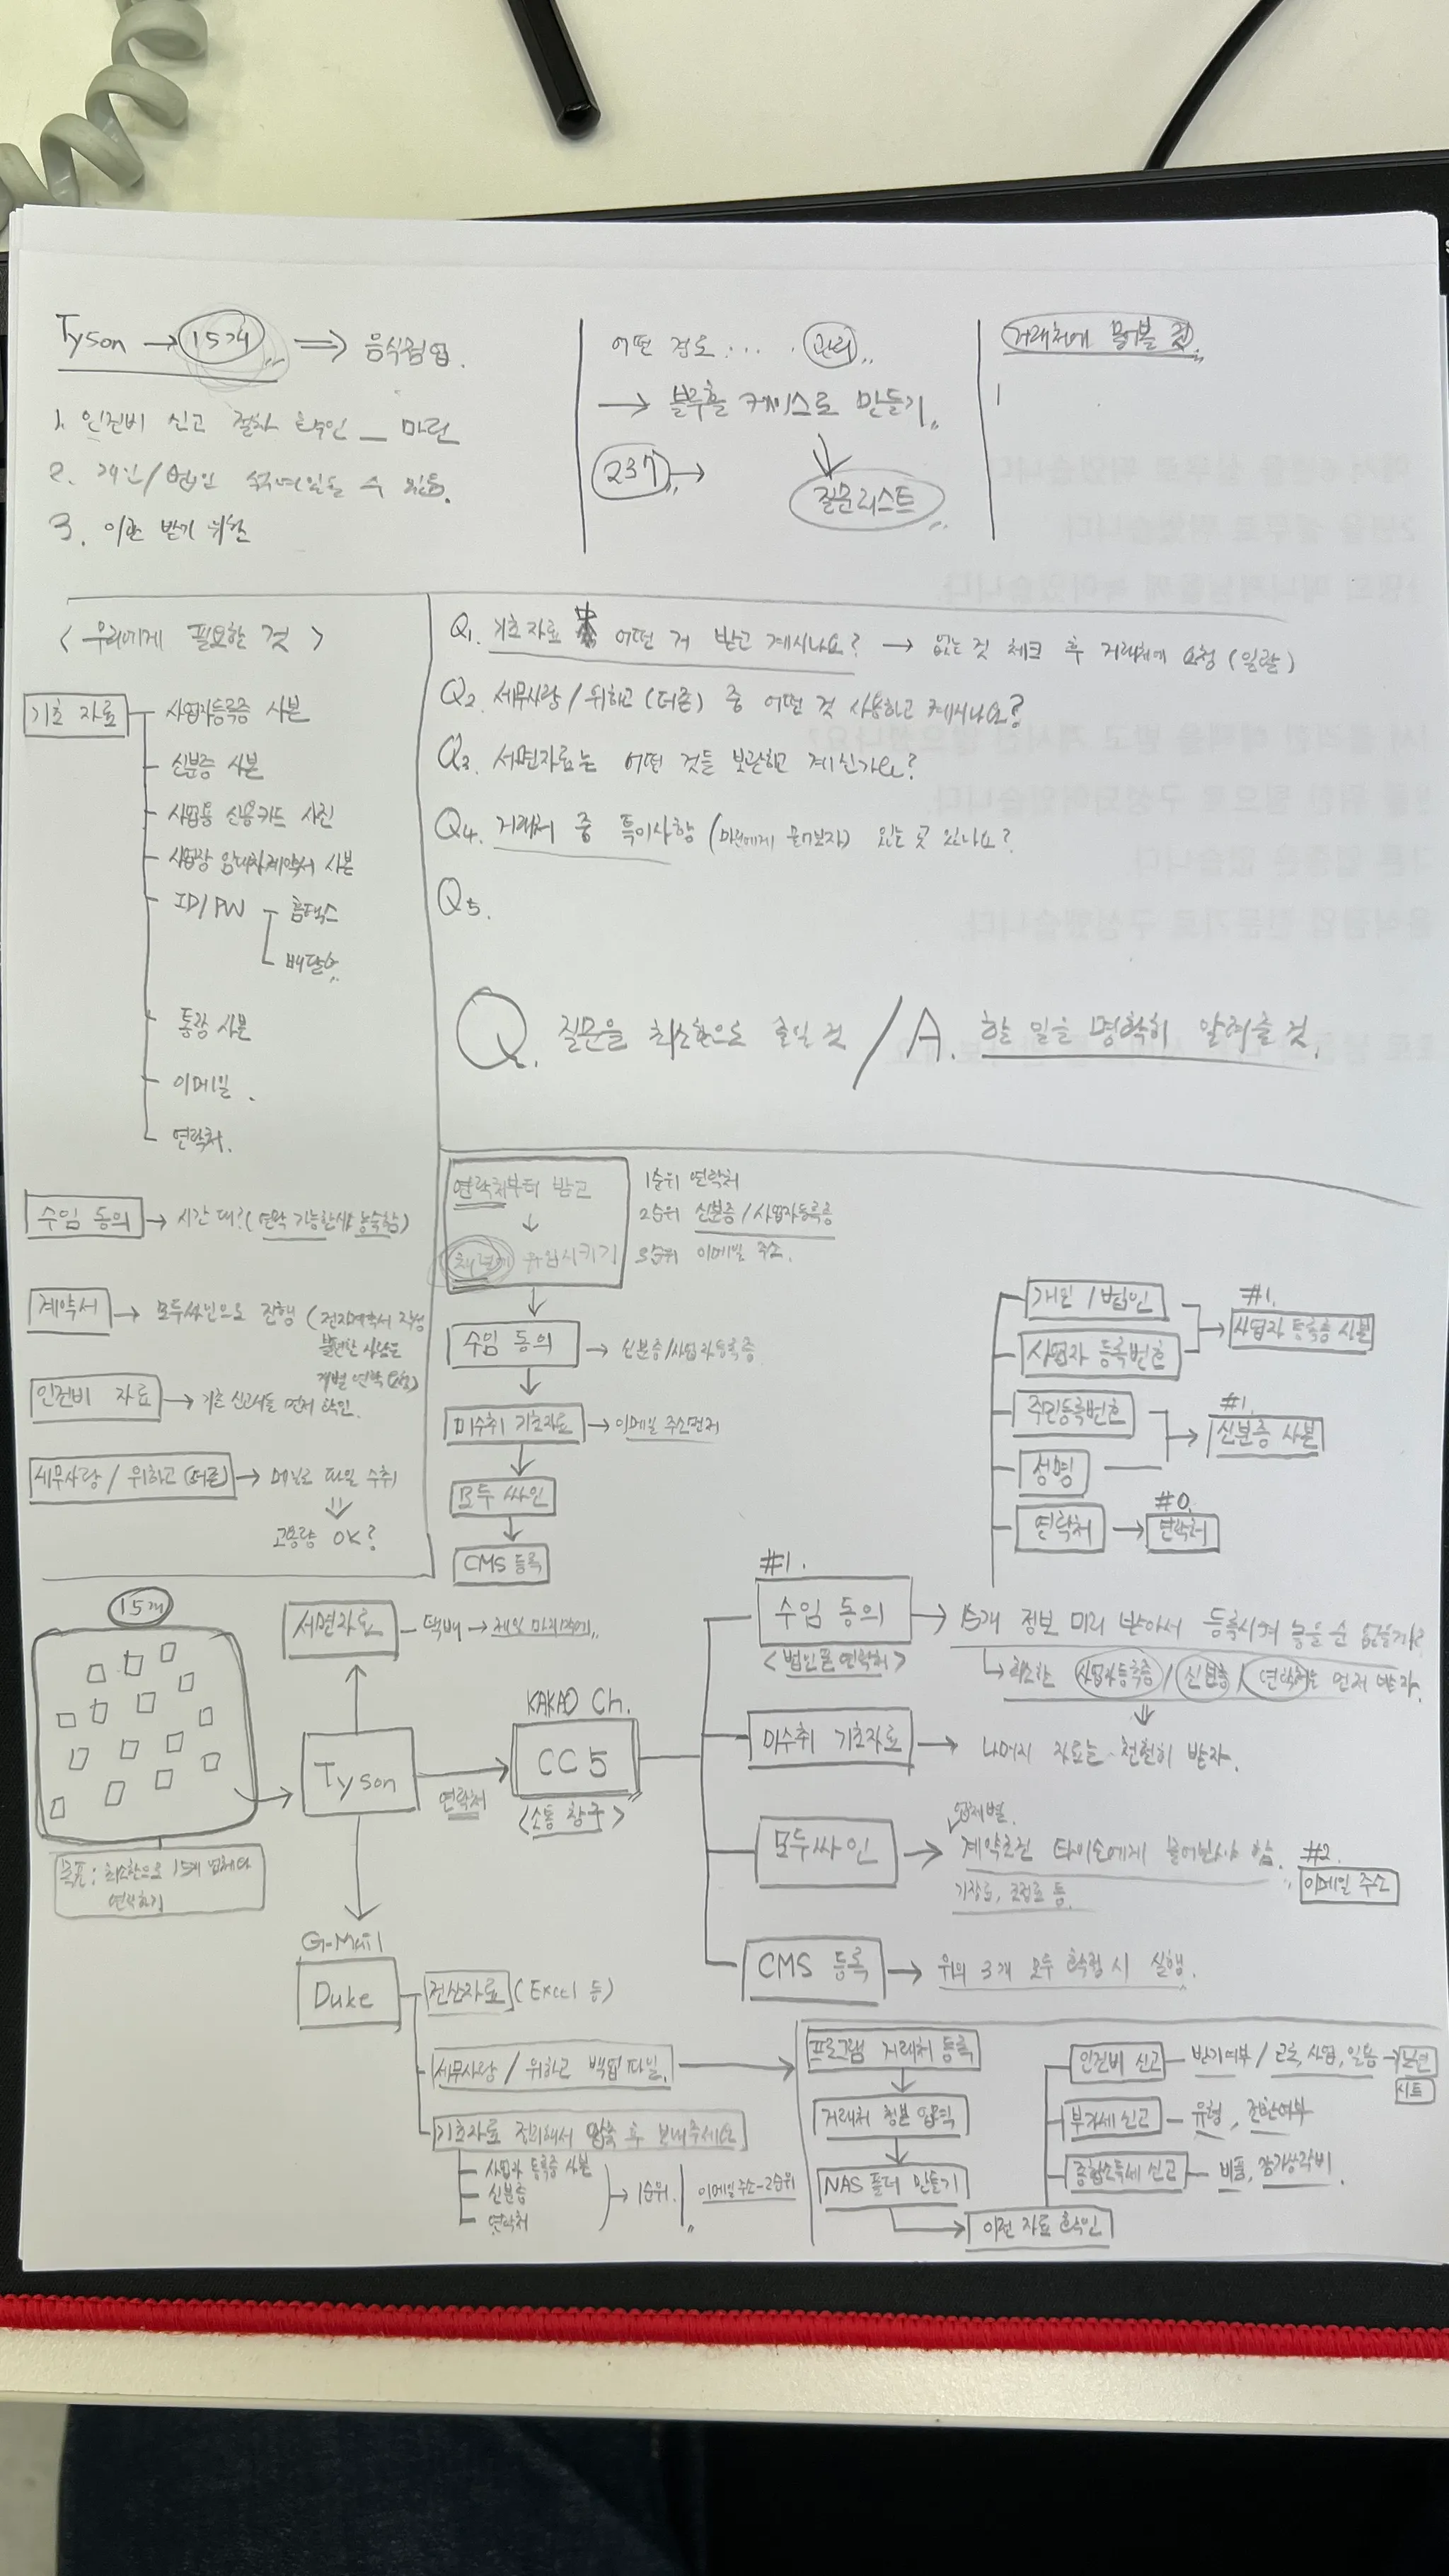 Tyson → 15개 ⇒ 음식점업.
1. 인건비 신고 절차 확인 _ 마련
2. 개인/법인 섞여있을 수 있음.
3. 이관 받기 위한
어떤 정도 ···· 관리
→ 블루홀 케이스로 만들기
237 →
질문리스트
거래처에 물어볼 것
1
< 우리에게 필요한 것 >
기초 자료
사업자등록증 사본
신분증 사본
사업용 신용카드 사진
사업장 임대차계약서 사본
ID/PW
홈택스
배달앱
통장 사본
이메일
연락처.
수임 동의 → 시간 대? (연락 가능한지
계약서 → 모두싸인으로 진행 (전자계약서 작성
불편한 사람은
개별 연락
인건비 자료 → 기존 신고서들 먼저 확인.
세무사랑 / 위하고(더존) → 메일로 파일 수취
고용량 OK?
Q1. 기초자료 어떤 거 받고 계시나요? → 없는 것 체크 후 거래처에 요청 (일괄)
Q2. 세무사랑 / 위하고(더존) 중 어떤 것 사용하고 계시나요?
Q3. 서면자료는 어떤 것들 보관하고 계신가요?
Q4. 거래처 중 특이사항 있는 곳 있나요?
Q5.
Q. 질문을 최소한으로 줄일 것 / A. 할 일을 명확히 알려줄 것.
연락처부터 받고
↓
채널에 유입시키기
1순위 연락처
2순위 신분증 / 사업자등록증
3순위 이메일 주소.
수임 동의 → 신분증/사업자등록증
미수취 기초자료 → 이메일 주소먼저
모두 싸인
CMS 등록
개인 / 법인
사업자 등록번호
#1.
사업자 등록증 사본
주민등록번호
성명
#1.
신분증 사본
연락처 →
#0.
연락처
15개
목표: 최소한으로 15개 업체와
연락하기
서면자료 - 택배 → 제일 마지막에..
Tyson
연락처
KAKAO Ch.
CC5
<소통 창구>
#1.
수임 동의 → 15개 정보 미리 받아서 등록시켜 놓을 순 없을까?
<법인폰 연락처>
최소한 사업자등록증 / 신분증 / 연락처는 먼저 받자.
미수취 기초자료 → 나머지 자료는 천천히 받자.
모두싸인 →
업체별
계약조건 타이슨에게 물어봐야 함.
기장료, 조정료 등.
#2.
이메일 주소
CMS 등록 → 위의 3개 모두 확정 시 실행.
G-Mail
Duke
전산자료 (Excel 등)
세무사랑 / 위하고 백업파일
기초자료 정리해서 압축 후 보내주세요
사업자 등록증 사본
신분증
연락처
→ 1순위.
이메일 주소-2순위
프로그램 거래처 등록
거래처 정보 입력
NAS 폴더 만들기
이전 자료 확인
인건비 신고 - 반기여부 / 근로, 사업, 일용 → 노션
시트
부가세 신고 - 유형, 간편여부
종합소득세 신고 - 비품, 감가상각비